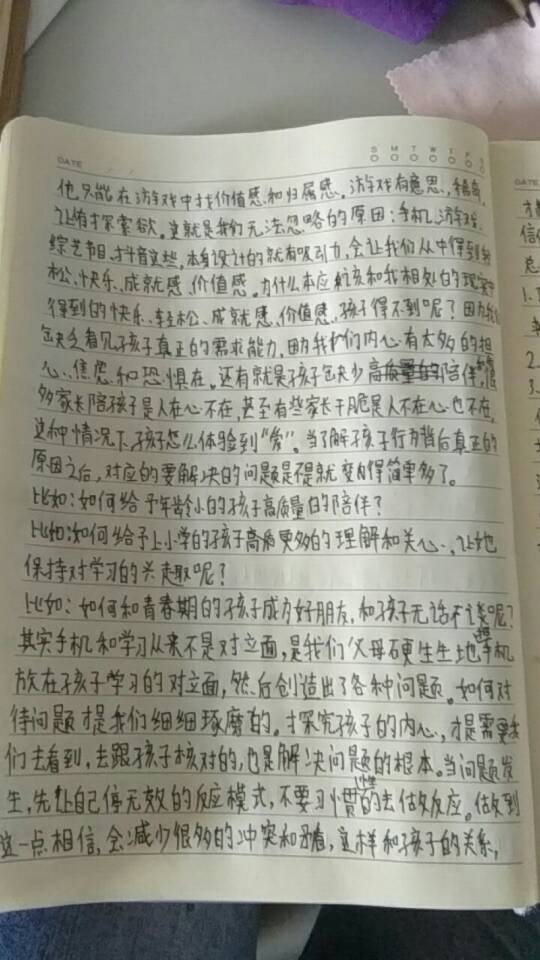 DATE
S M T W T F S
他只能在游戏中找价值感和归属感。游戏有意思,稀奇,
让他有探索欲。这就是我们无法忽略的原因:手机、游戏、
综艺节目、抖音这些,本身设计的就有吸引力,会让我们从中得到轻
松、快乐、成就感、价值感。为什么本应该和我相处的现实中
得到的快乐、轻松、成就感、价值感,孩子得不到呢?因为我们
缺乏看见孩子真正的需求能力,因为我们内心有太多的担
心、焦虑和恐惧在。还有就是孩子缺少高质量的陪伴,很
多家长陪孩子是人在心不在,甚至有些家长干脆是人不在心也不在,
这种情况下,孩子怎么体验到“爱”。当了解孩子行为背后真正的
原因之后,对应的要解决的问题是不是就变得简单多了。
比如:如何给予年龄小的孩子高质量的陪伴?
比如:如何给予上小学的孩子更多的理解和关心,让她
保持对学习的兴趣呢?
比如:如何和青春期的孩子成为好朋友,和孩子无话不谈呢?
其实手机和学习从来不是对立面,是我们父母硬生生地把手机
放在孩子学习的对立面,然后创造出了各种问题。如何对
待问题才是我们细细琢磨的。探究孩子的内心,才是需要我
们去看到,去跟孩子核对的,也是解决问题的根本。当问题发
生,先让自己停无效的反应模式,不要习惯性的去做反应。做到
这一点相信,会减少很多的冲突和矛盾,这样和孩子的关系,
DATE
才
信
总
1.
2.
3.